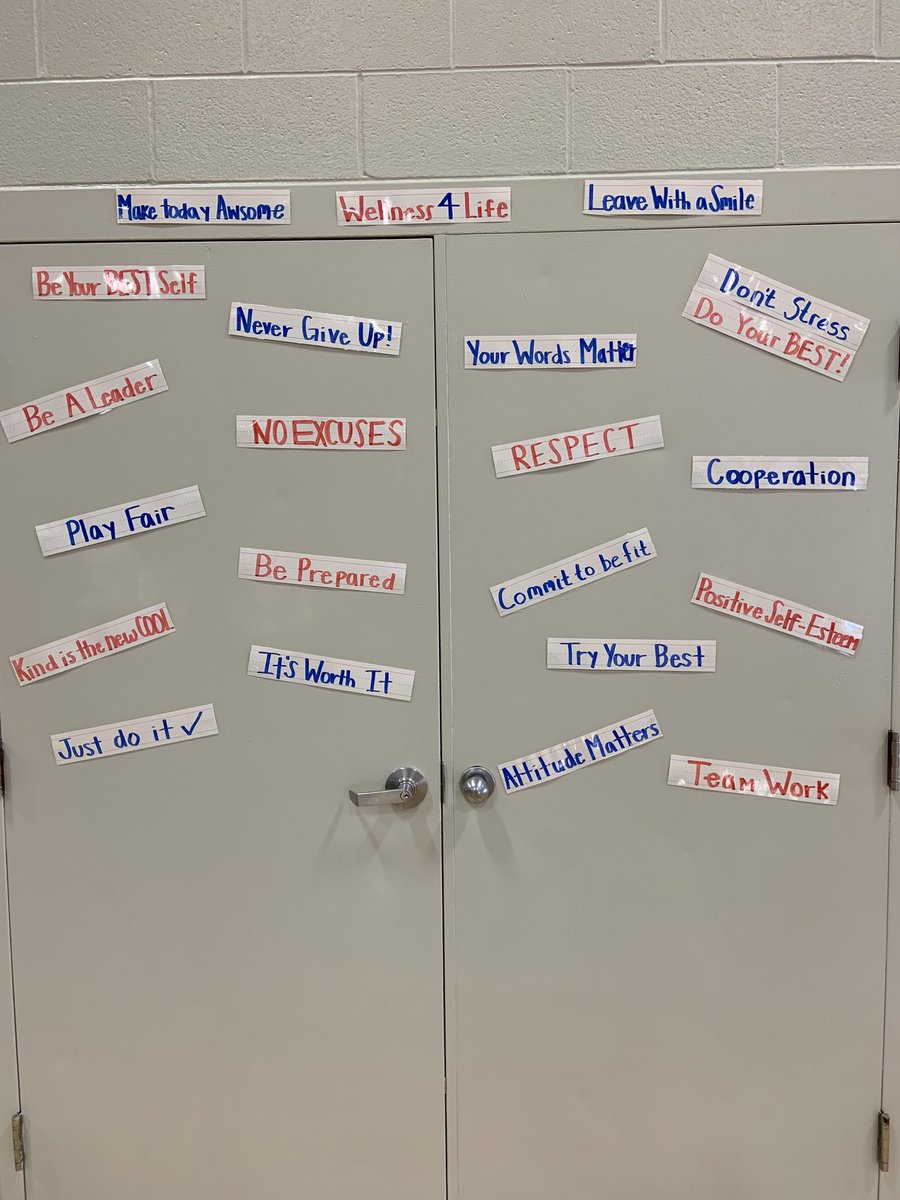 Make today Awsome
Wellness 4 Life
Leave With a Smile
Be Your BEST Self
Never Give Up!
Be A Leader
NO EXCUSES
Play Fair
Be Prepared
Kind is the new COOL
It's Worth It
Just do it ✓
Don't Stress
Do Your BEST!
Your Words Matter
RESPECT
Cooperation
Commit to be fit
Positive Self-Esteem
Try Your Best
Attitude Matters
Team Work